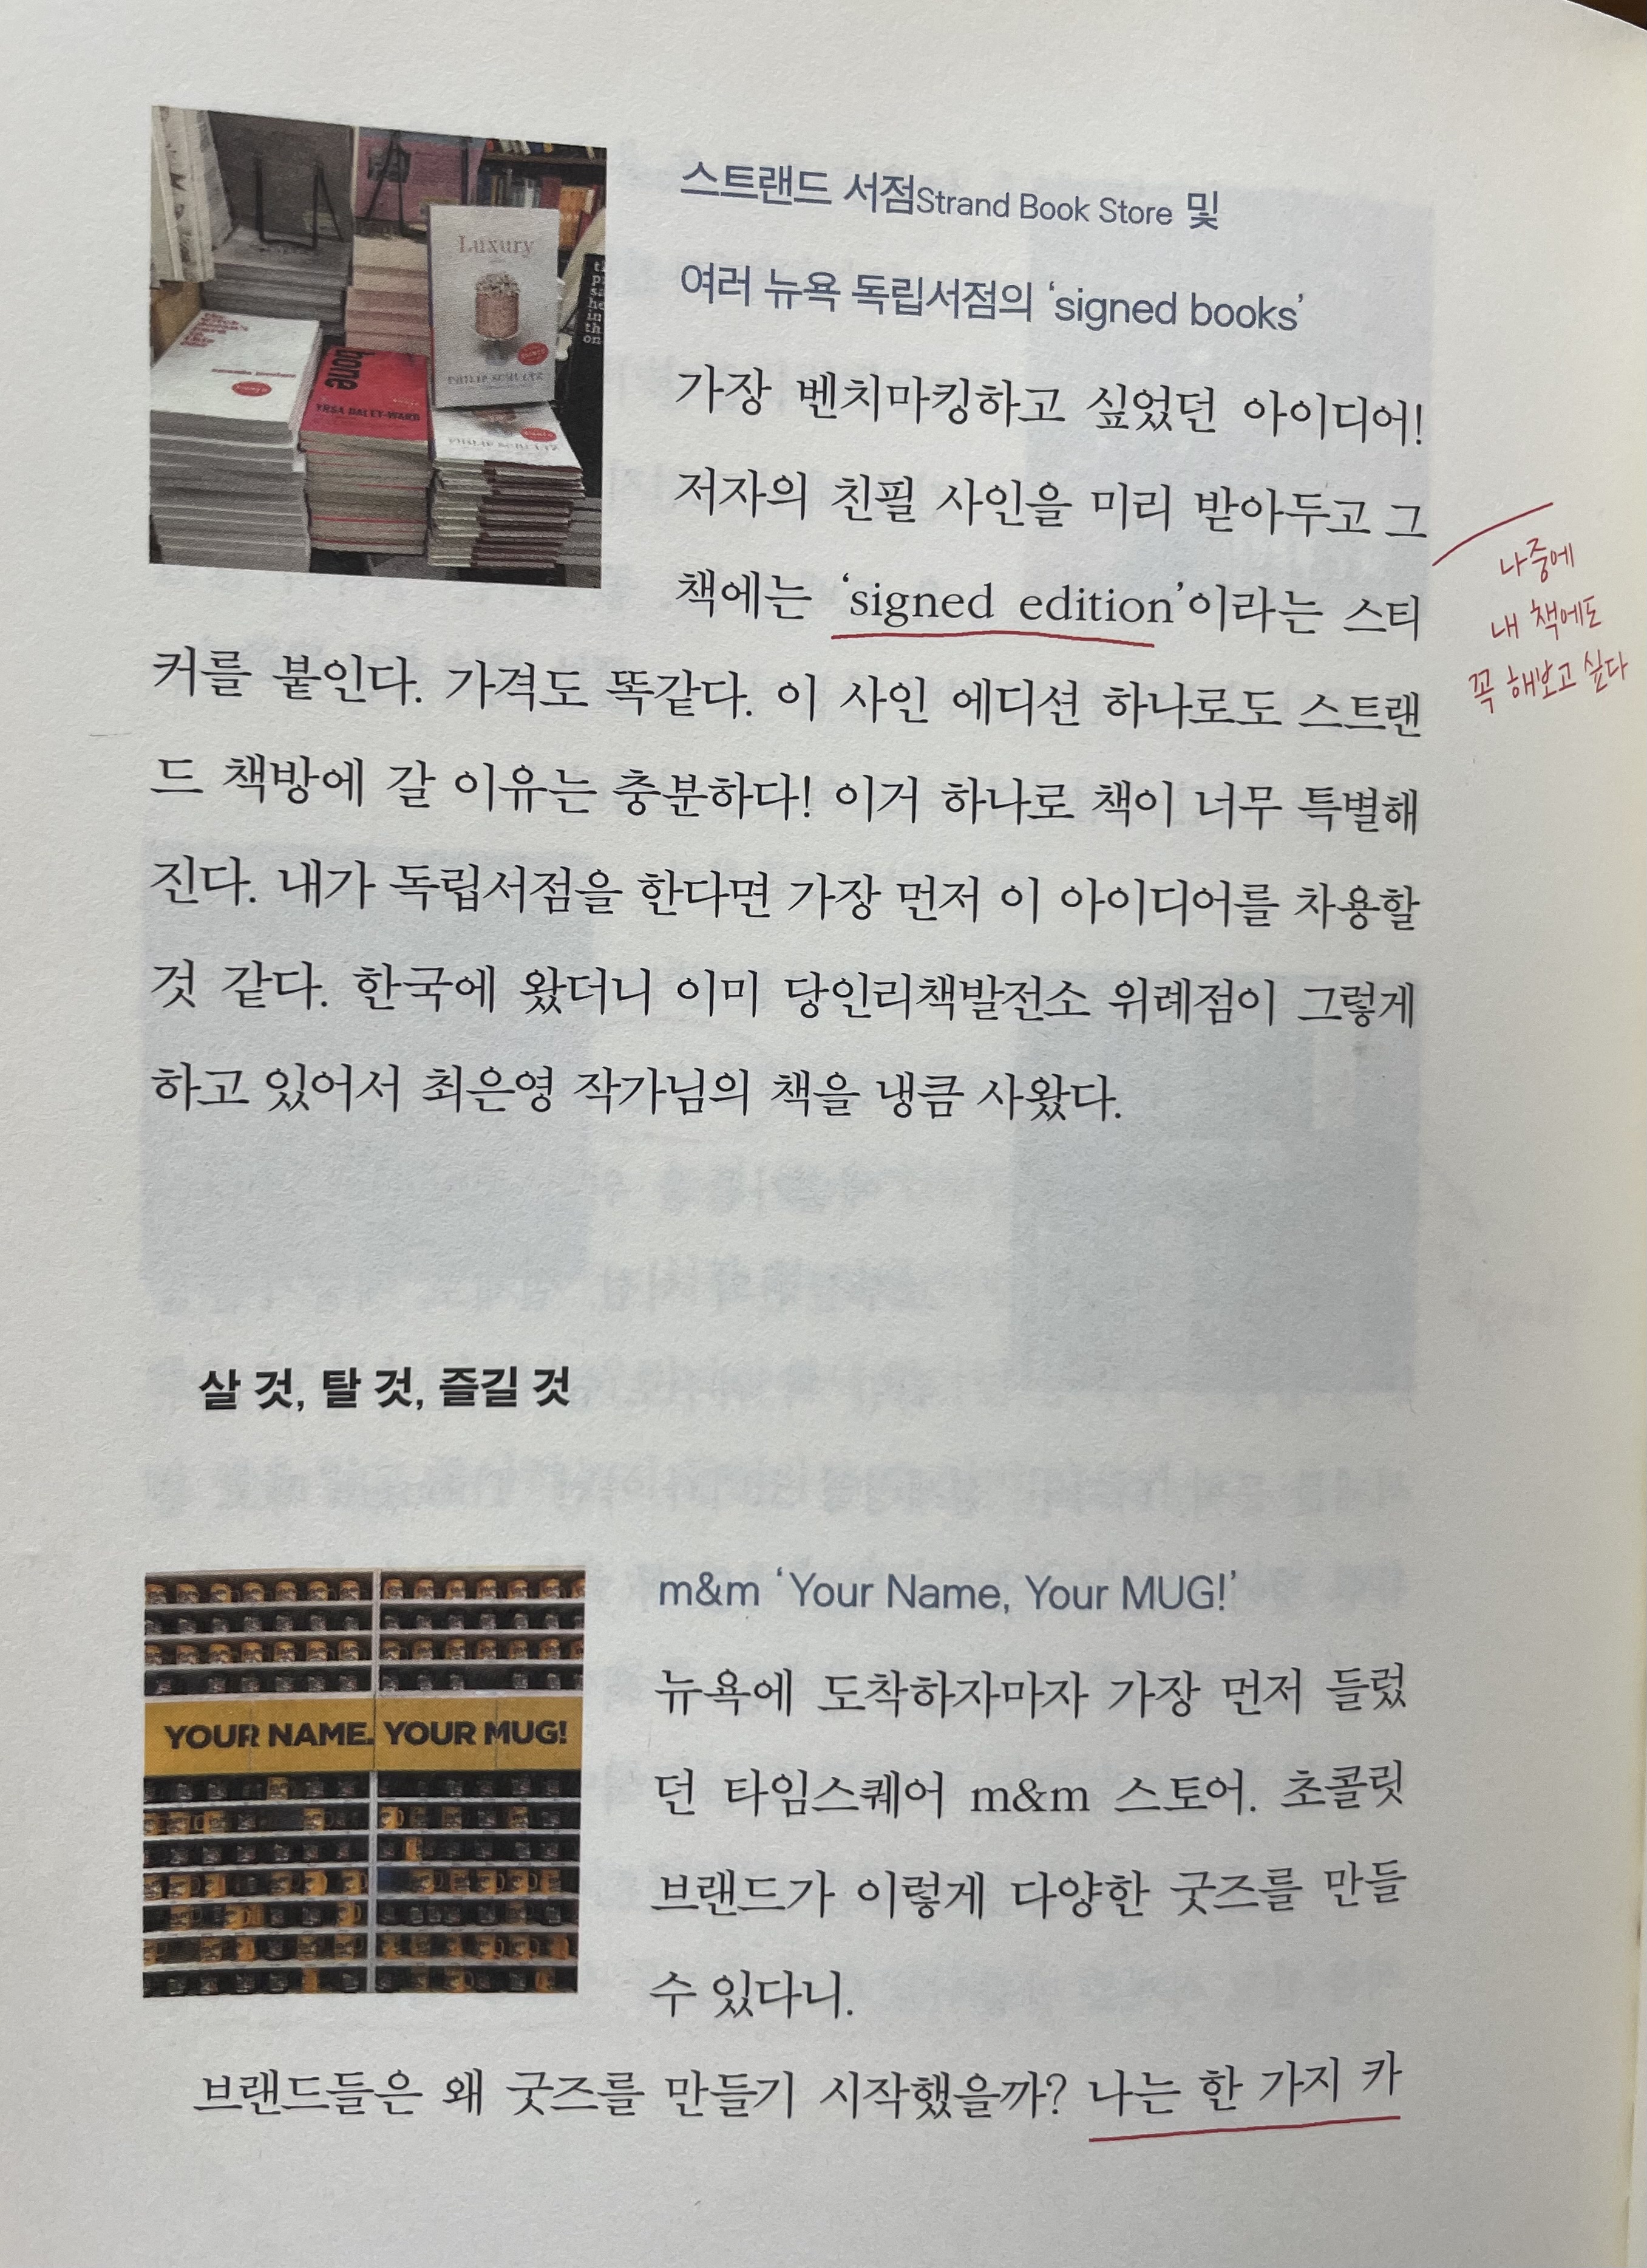 Luxury
PHILIP SCHULTZ
bone
YRSA DALEY-WARD
스트랜드 서점Strand Book Store 및
여러 뉴욕 독립서점의 ‘signed books’
가장 벤치마킹하고 싶었던 아이디어!
저자의 친필 사인을 미리 받아두고 그
책에는 ‘signed edition’이라는 스티
커를 붙인다. 가격도 똑같다. 이 사인 에디션 하나로도 스트랜
드 책방에 갈 이유는 충분하다! 이거 하나로 책이 너무 특별해
진다. 내가 독립서점을 한다면 가장 먼저 이 아이디어를 차용할
것 같다. 한국에 왔더니 이미 당인리책발전소 위례점이 그렇게
하고 있어서 최은영 작가님의 책을 냉큼 사왔다.
나중에
내 책에도
꼭 해보고 싶다
살 것, 탈 것, 즐길 것
YOUR NAME. YOUR MUG!
m&m ‘Your Name, Your MUG!’
뉴욕에 도착하자마자 가장 먼저 들렀
던 타임스퀘어 m&m 스토어. 초콜릿
브랜드가 이렇게 다양한 굿즈를 만들
수 있다니.
브랜드들은 왜 굿즈를 만들기 시작했을까? 나는 한 가지 카